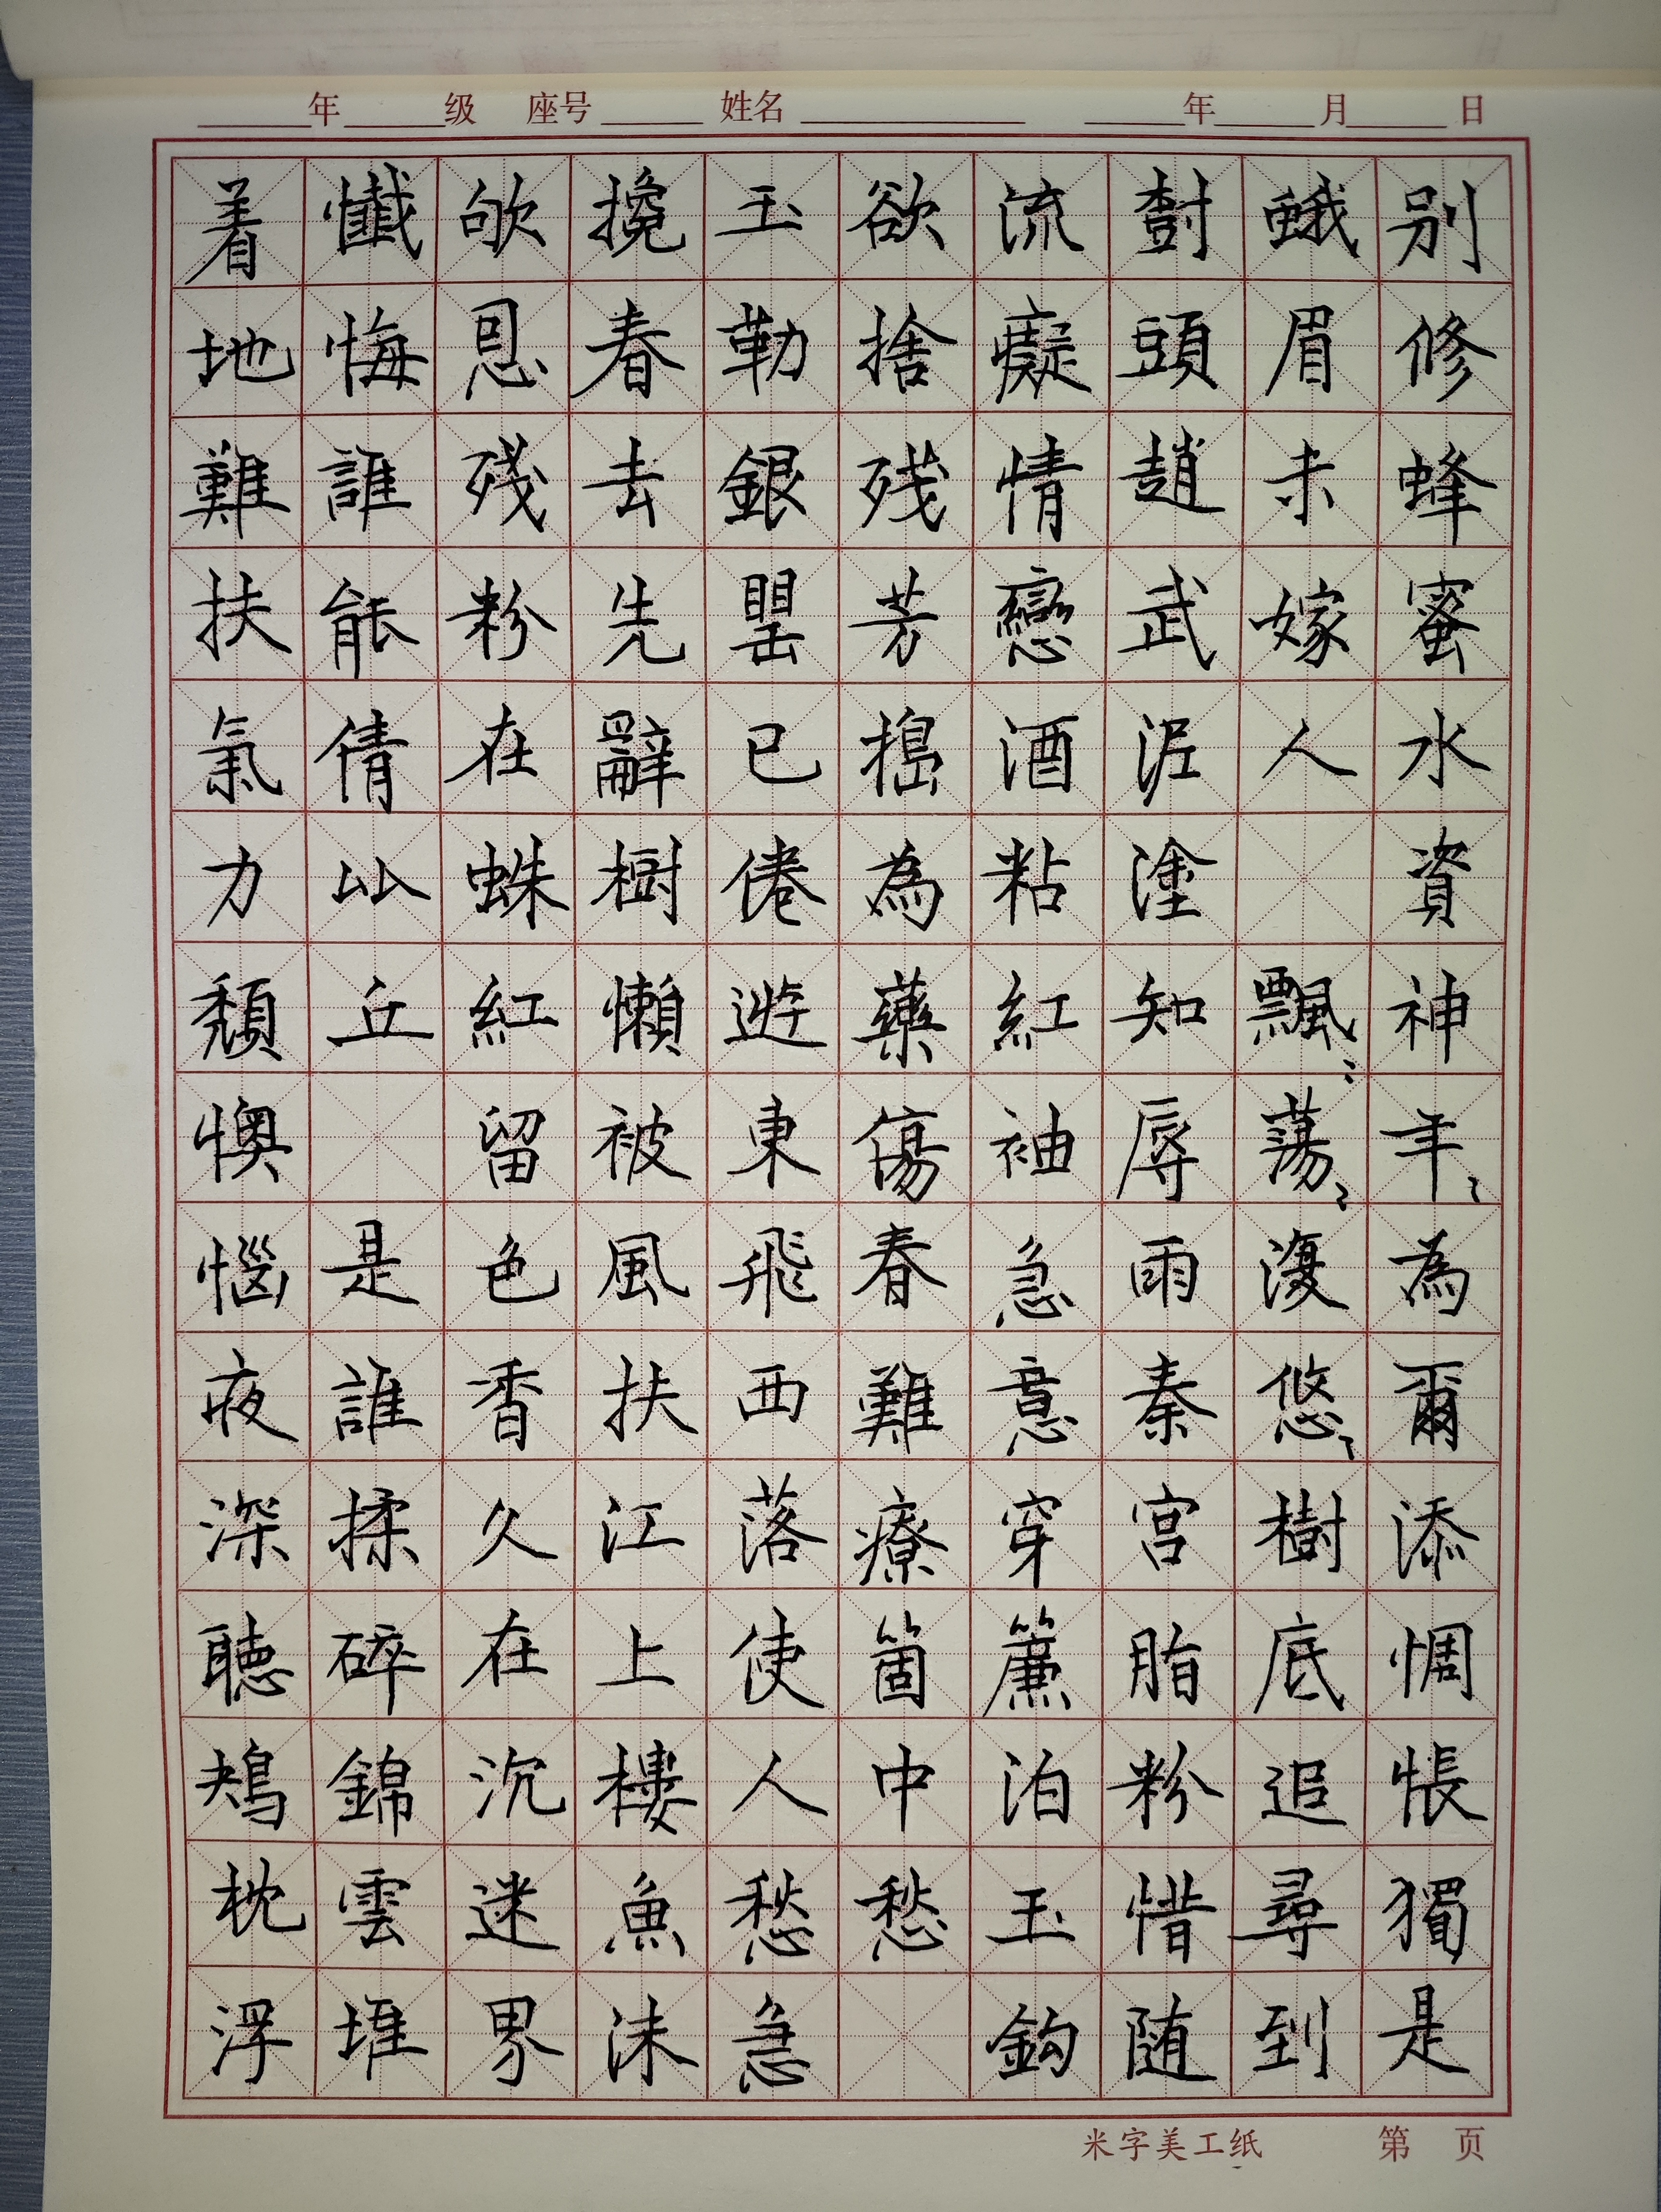 年 级 座号 姓名 年 月 日
别修蜂蜜水資神年〻為爾添惆悵獨是
蛾眉未嫁人 飄〻蕩〻復悠〻樹底追尋到
尌頭趙武泥塗知辱雨秦宫脂粉惜随
流癡情戀酒粘紅袖急意穿簾泊玉鈎
欲捨残芳搗為藥傷春難療箇中愁
玉勒銀罌已倦遊東飛西落使人愁急
攙春去先辭樹懶被風扶江上樓魚沫
欨恩残粉在蛛紅留色香久在沉迷界
懺悔誰能倩比丘 是誰揉碎錦雲堆
着地難扶氣力頹懊惱夜深聽鳺枕浮
米字美工纸 第 页